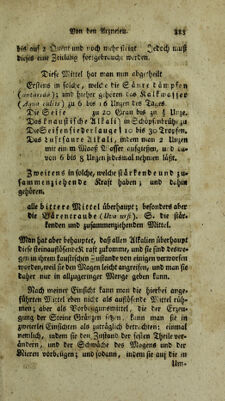 Von den Arzneien. 223
bis auf 2 Quent und noch mehr steigt. Jedoch muß
dieses eine Zeitlang fortgebraucht werden.
Diese Mittel hat man nun abgetheilt
Erstens in solche, welche die Säure dämpfen
(antacida); und hieher gehören das Kalkwasser
(Aqua calcis) zu 6 bis 16 Unzen des Tages.
Die Seife zu 20 Gran bis zu Unze.
Das kaustische Alkali, in Schöpsenbrühe zu
Die Seifensiederlauge 10 bis 30 Tropfen.
Das luftsaure Alkali, indem man 2 Unzen
mit ein m Maaß Wasser aufgießen, und da-
von 6 bis 8 Unzen jedesmal nehmen läßt.
Zweitens in solche, welche stärkende und zu-
sammenziehende Kraft haben; und dahin
gehören.
alle bittere Mittel überhaupt; besonders aber
die Bärentraube (Uva ursi). S. die stär-
kenden und zusammenziehenden Mittel.
Man hat aber behauptet, daß allen Alkalien überhaupt
eine steinauflösende Kraft zukomme, und sie sind deswe-
gen in ihrem kaustischen Zustande von einigen verworfen
worden, weil sie den Magen leicht angreifen, und man sie
daher nur in allzugeringer Menge geben kann.
Nach meiner Einsicht kann man die hierbei ange-
führten Mittel eben nicht als auflösende Mittel rüh-
men; aber als Vorbeugungsmittel, die der Erzeu-
gung der Steine Gränzen setzen, kann man sie in
zweierlei Einsichten als zuträglich betrachten: einmal
nemlich, indem sie den Zustand der festen Theile ver-
ändern, und der Schwäche des Magens und der
Nieren vorbeugen; und sodann, indem sie die in
Um-